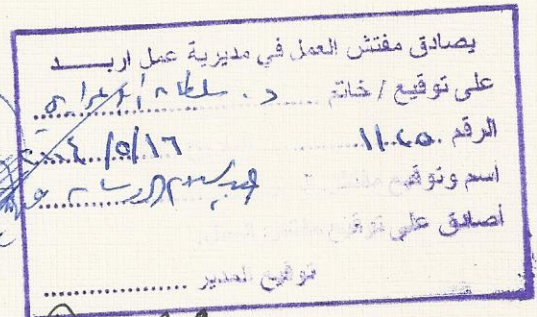 يصادق مفتش العمل في مديرية عمل اربــد
على توقيع / خاتم د. سلطان
الرقم ١١٠٤٥ ٢٠٠٤/٥/١٦
اسم وتوقيع مفتش
أصادق على توقيع مفتش العمل
توقيع المدير